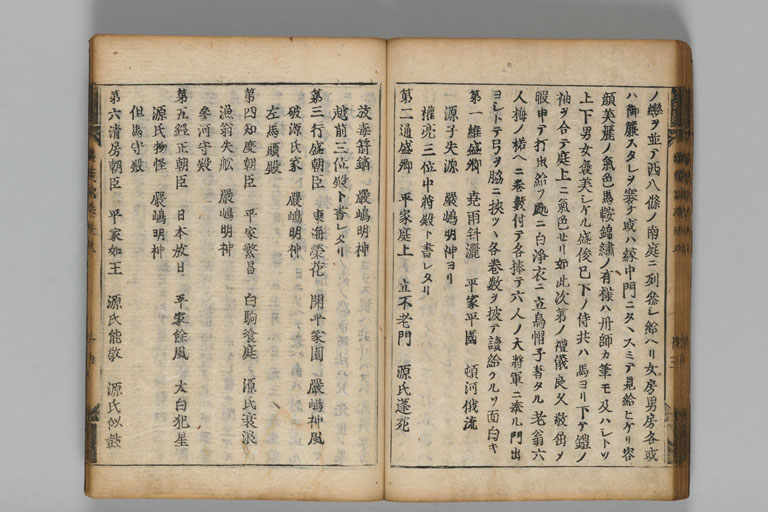 ノ轡ヲ並テ西八條ノ南庭ニ列參シ給ヘリ女房男房各或
ハ御簾スタレヲ褰ケ或ハ縁中門ニタヽスミテ見給ヒケリ容
顔美麗ノ氣色馬鞍錦繡ノ有様ハ丹師カ筆モ及ハシトソ
上下男女褒美シケル盛俊已下ノ侍共ハ馬ヨリ下テ鎧ノ
袖ヲ合テ庭上ニ氣色セリ如此次第ノ禮儀良久敬
暇申テ打出給フ處ニ白浄衣ニ立烏帽子著タル老翁六
人梅ノ楉ニ巻數付テ各捧テ六人ノ大將軍ニ奉ル門出
ヨシトテ弓ヲ脇ニ挾ツヽ各巻數ヲ披テ讀給ケルソ面白キ
第一維盛卿 堯雨斜灑 平家平國 頓河俄流
源子失源 嚴嶋明神ヨリ
權亮三位中將殿ト書レタリ
第二通盛卿 平家庭上 立不老門 源氏蓬死
放毒箭鏑 嚴嶋明神
越前三位殿ト書レタリ
第三行盛朝臣 東海榮花 開平家園 嚴嶋神風
破源氏家 嚴嶋明神
左馬頭殿
第四知度朝臣 平家繁昌 白駒飡庭 源氏衰浪
漁翁失舩 嚴嶋明神
參河守殿
第五經正朝臣 日本放日 平家餘風 太白犯星
源氏物怪 嚴嶋明神
但馬守殿
第六清房朝臣 平家如王 源氏能敬 源氏似鼓